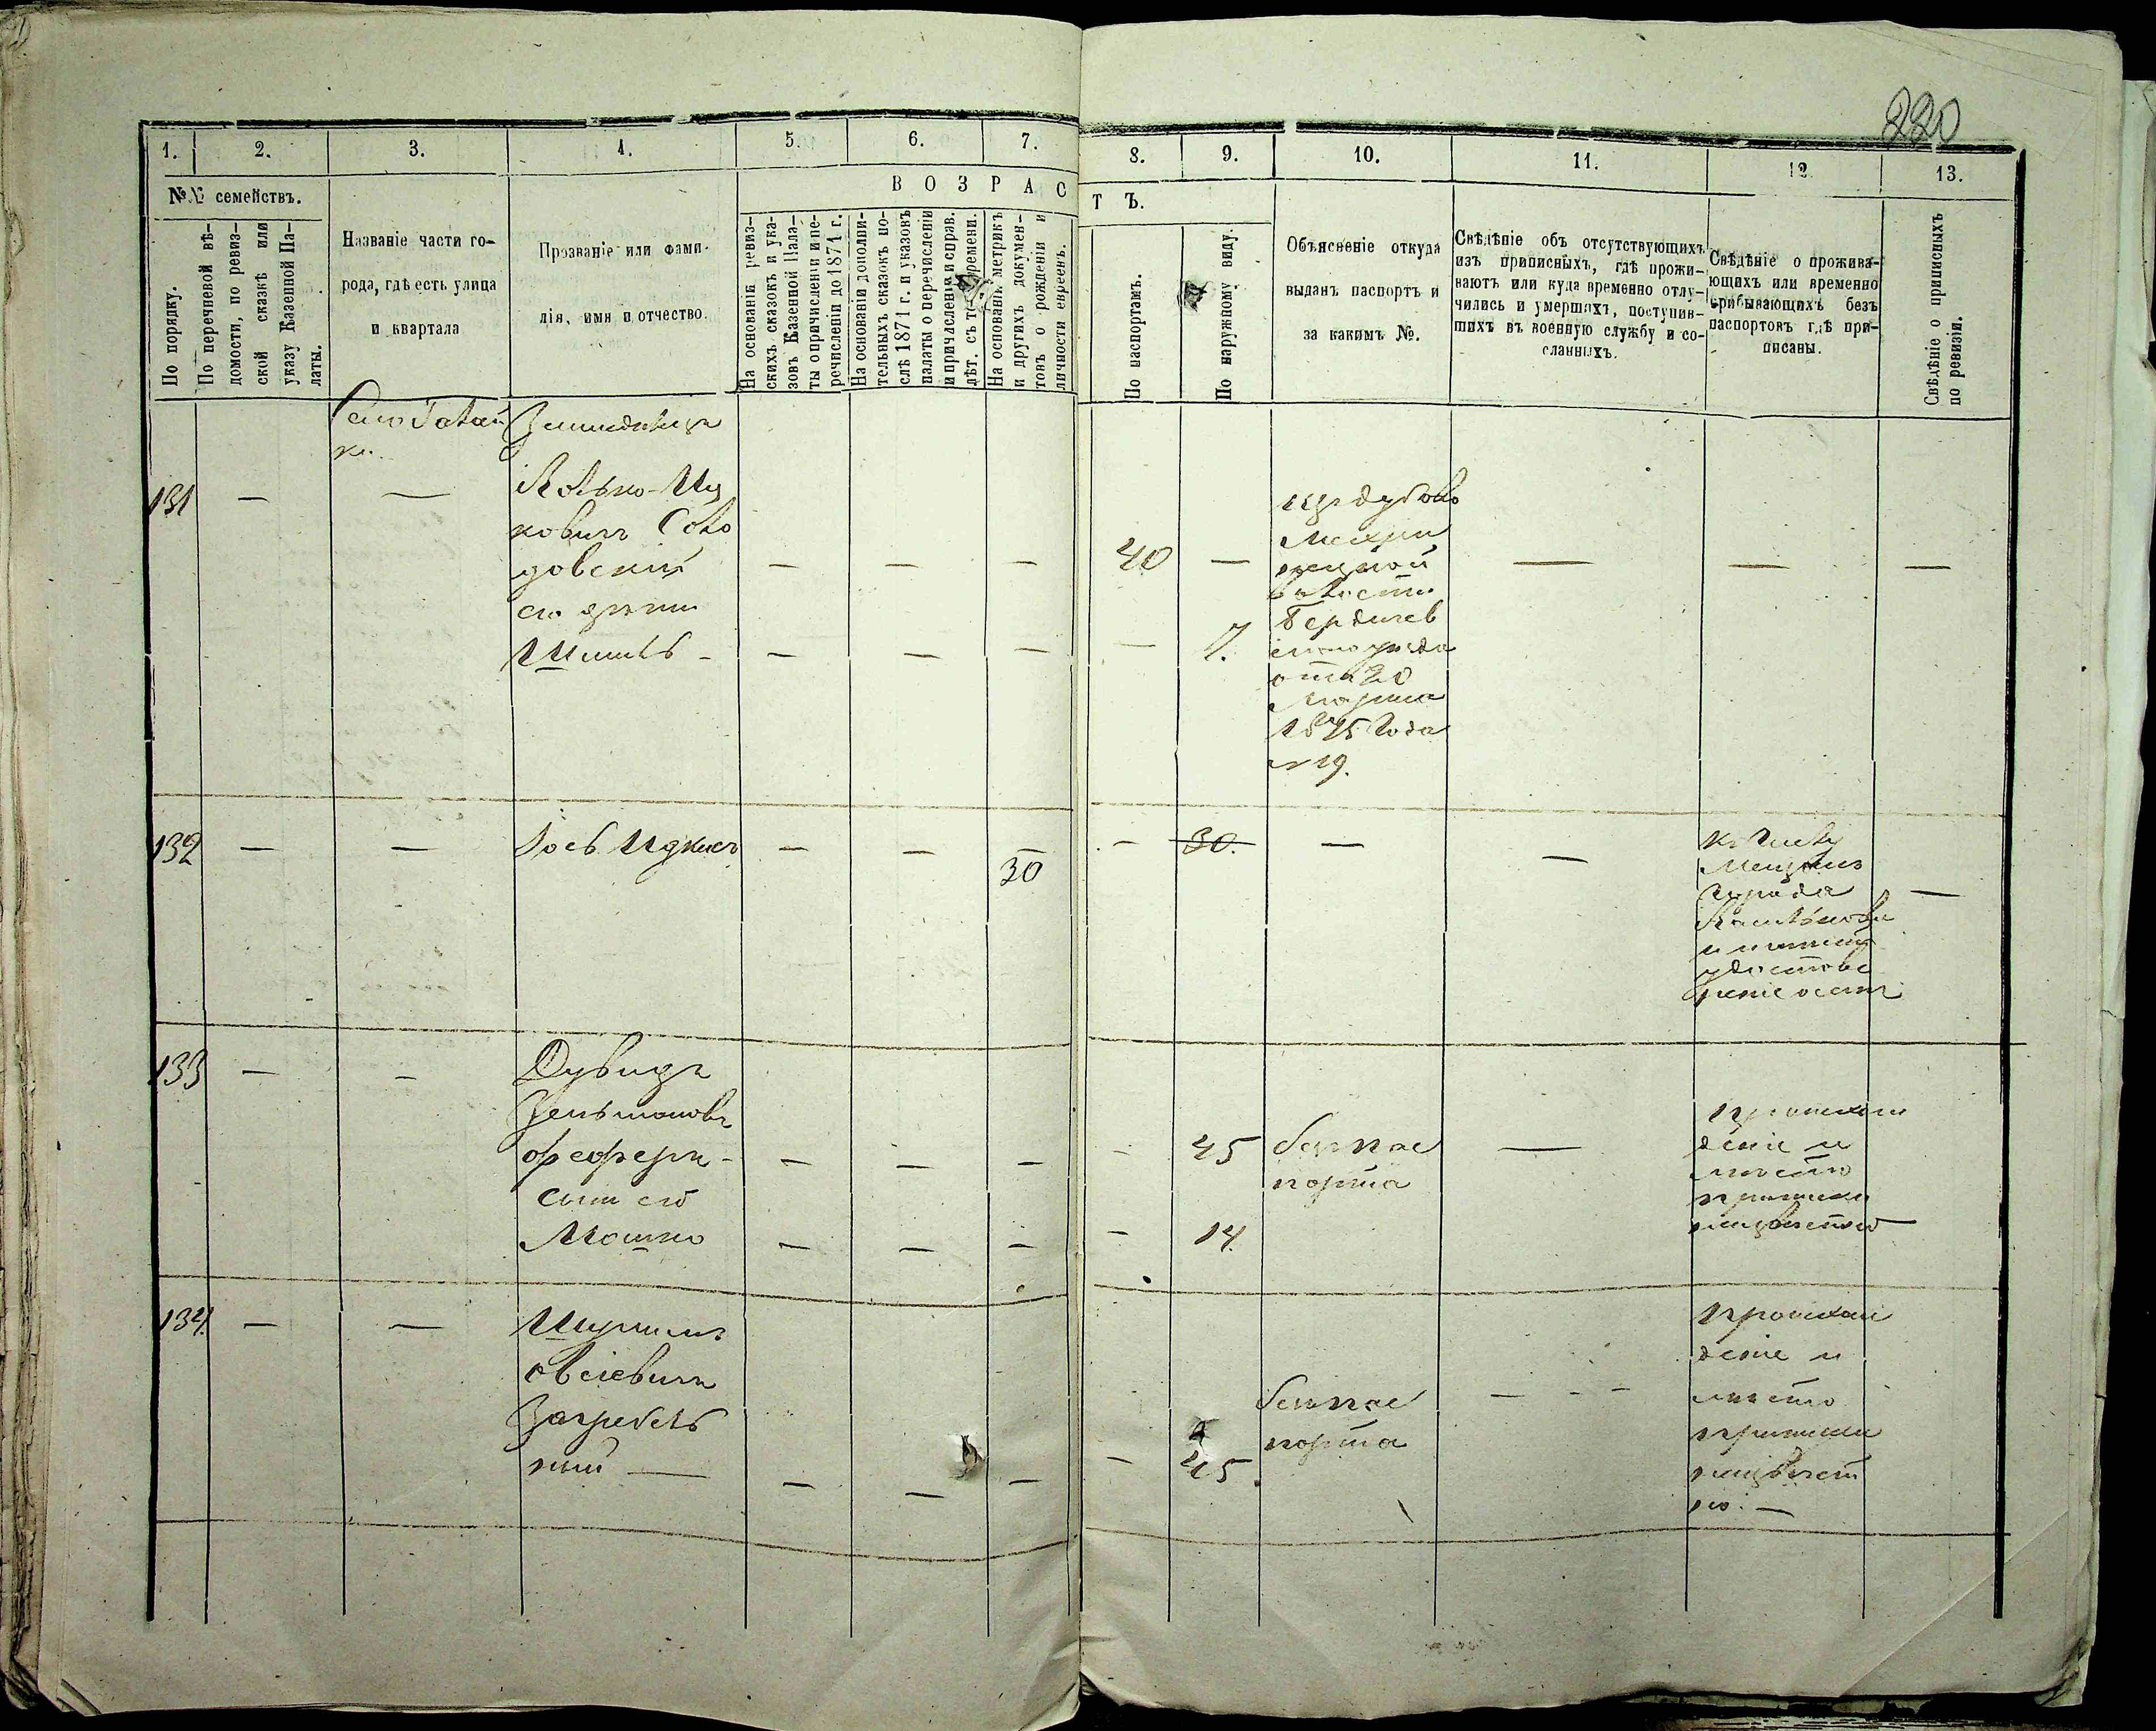 220
1.
2.
3.
4.
5.
6.
7.
8.
9.
10.
11.
12
13.
№№ семействъ.
В О З Р А С Т Ъ.
По порядку.
По перечневой вѣ-
домости, по ревиз-
ской сказкѣ или
указу Казенной Па-
латы.
Названіе части го-
рода, гдѣ есть улица
и квартала
Прозваніе или фами-
лія, имя и отчество.
На основаніи ревиз-
скихъ сказокъ и ука-
зовъ Казенной Пала-
ты о причисленіи и пе-
речисленіи до 1871 г.
На основаніи дополни-
тельныхъ сказокъ по-
слѣ 1871 г. и указовъ
палаты о перечисленіи
и причисленіи и справ.
лѣт. съ того времени.
На основаніи метрикъ
и другихъ докумен-
товъ о рожденіи и
личности евреевъ.
По паспортамъ.
По наружному виду.
Объясненіе откуда
выданъ паспортъ и
за какимъ №.
Свѣдѣніе объ отсутствующихъ
изъ приписныхъ, гдѣ прожи-
ваютъ или куда временно отлу-
чились и умершихъ, поступив-
шихъ въ военную службу и со-
сланныхъ.
Свѣдѣніе о прожива-
ющихъ или временно
прибывающихъ безъ
паспортовъ гдѣ при-
писаны.
Свѣдѣніе о приписныхъ
по ревизіи.
131
—
—
ковичъ Соко
довскій
его дѣти
— — — 40 —
волости
Бердичев
скаго уѣзда
отъ 20
Марта
1875 Года
№ 19.
— — —
— — — — 7.
132 — —
Іось Ицкись
— — — 30
— 30. — —
мещанъ
города
удостове
реніе —
133 — —
Дувидъ
Зельмановъ
сынъ его
Мошко
— — — — 45
безъ пас
порта
—
происхож
деніе и
мѣсто
приписки
неизвѣстно
— — — — 14.
134. — —
Шулимъ
Овсіевичъ
Загребель
ный —
— — — — 45
безъ пас
порта
— - -
происхож
деніе и
мѣсто
приписки
неизвѣст
но. —